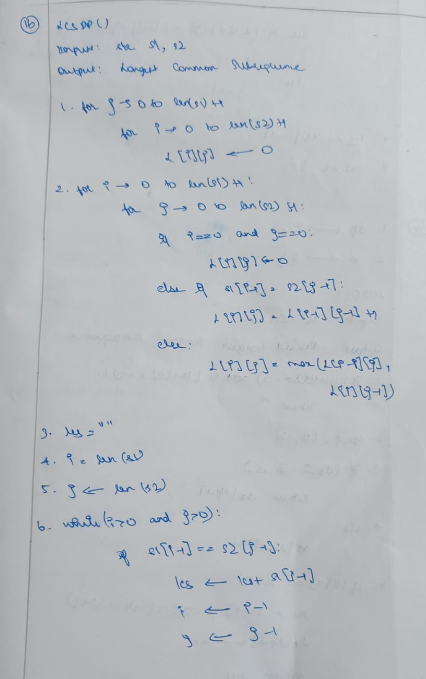 16 LCS DP ()
Input: str s1, s2
Output: Longest Common Subsequence
1. for j → 0 to len(s1)+1
for i → 0 to len(s2)+1
L[i][j] ← 0
2. for i → 0 to len(s1)+1:
for j → 0 to len(s2)+1:
if i==0 and j==0:
L[i][j] ← 0
else if s1[i-1] = s2[j-1]:
L[i][j] = L[i-1][j-1]+1
else:
L[i][j] = max(L[i-1][j],
L[i][j-1])
3. lcs = ""
4. i = len(s1)
5. j ← len(s2)
6. while(i>0 and j>0):
if s1[i-1] == s2[j-1]:
lcs ← lcs+ s1[i-1]
i ← i-1
j ← j-1